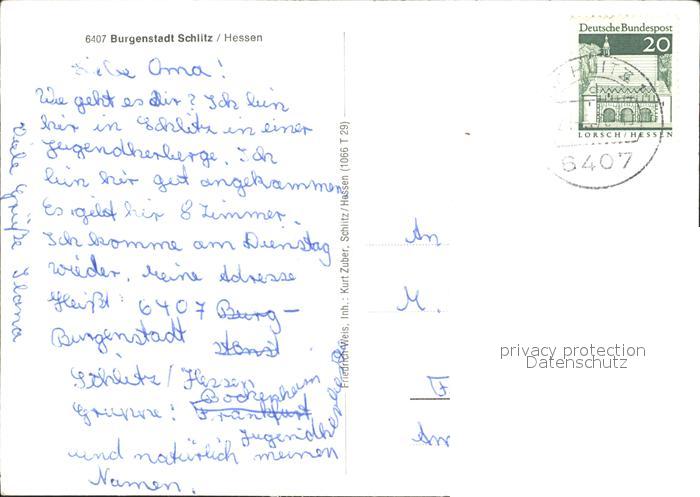 6407 Burgenstadt Schlitz / Hessen
Liebe Oma!
Wie geht es dir? Ich bin
hir in Schlitz in einer
Jugendherberge. Ich
bin hir gut angekammen
Es gibt hir 8 Zimmer.
Ich komme am Dienstag
wieder. Meine Adresse
Heißt: 6407 Burg-
Burgenstadt
Schlitz / Hessen
Gruppe: Frankfurt
Bockenheim
Jugendherberge
und natürlich meinen
Namen.
Viele Grüße Ilona
Friedrich Weis, Inh.: Kurt Zuber, Schlitz/Hessen (1066 T 29)
Deutsche Bundespost
20
LORSCH / HESSEN
SCHLITZ
6407
An
M.
F
An
privacy protection
Datenschutz